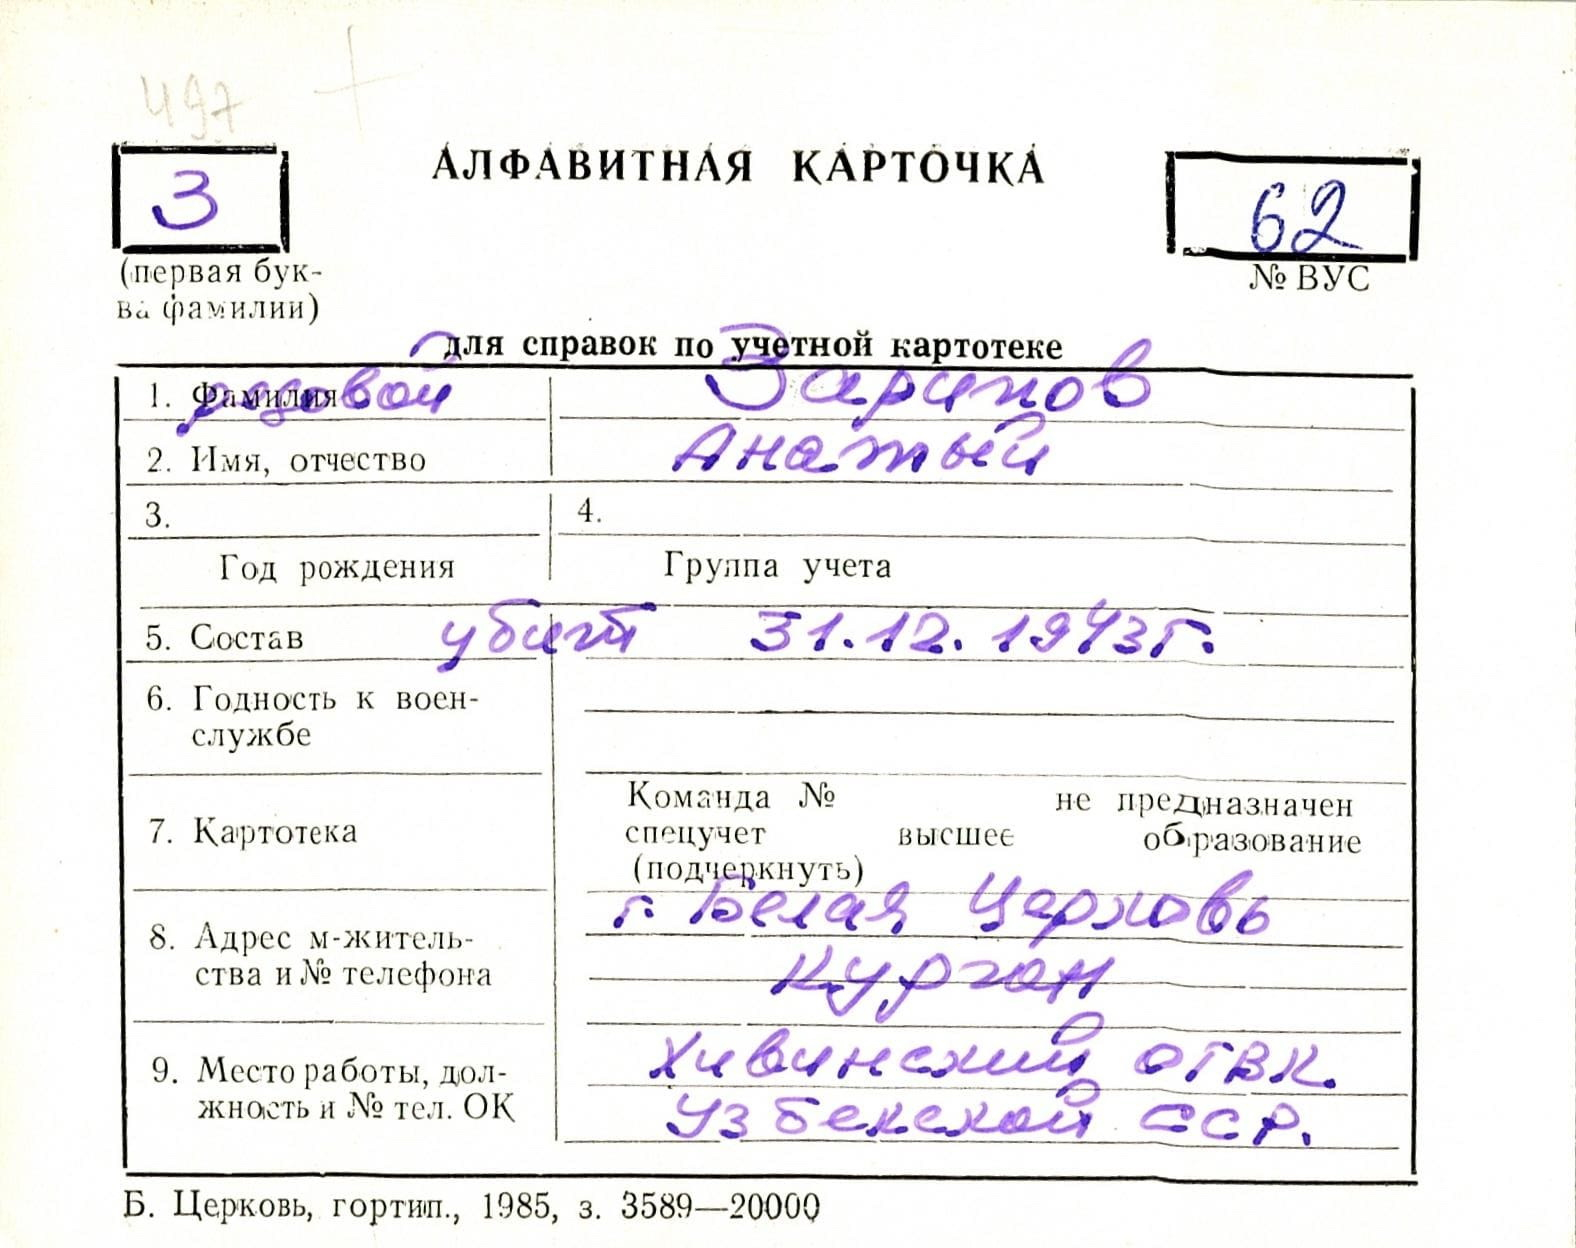 497
АЛФАВИТНАЯ КАРТОЧКА
З
62
(первая бук-
ва фамилии)
№ ВУС
для справок по учетной картотеке
1. Фамилия рядовой Зарипов
2. Имя, отчество Анатый
3. 4.
Год рождения Группа учета
5. Состав убит 31.12.1943г.
6. Годность к воен-
службе
7. Картотека
Команда № не предназначен
спецучет высшее образование
(подчеркнуть)
8. Адрес м-житель-
ства и № телефона
г. Белая Церковь
Курган
9. Место работы, дол-
жность и № тел. ОК
Хивинский ОГВК.
Узбекской ССР.
Б. Церковь, гортип., 1985, з. 3589—20000